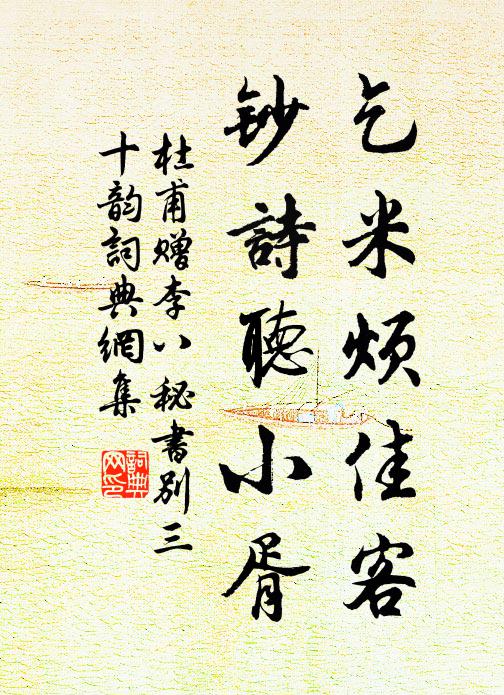 乞米烦佳客
钞詩聽小胥
杜甫赠李八秘書别三
十韵詞典網集
詞典
网印